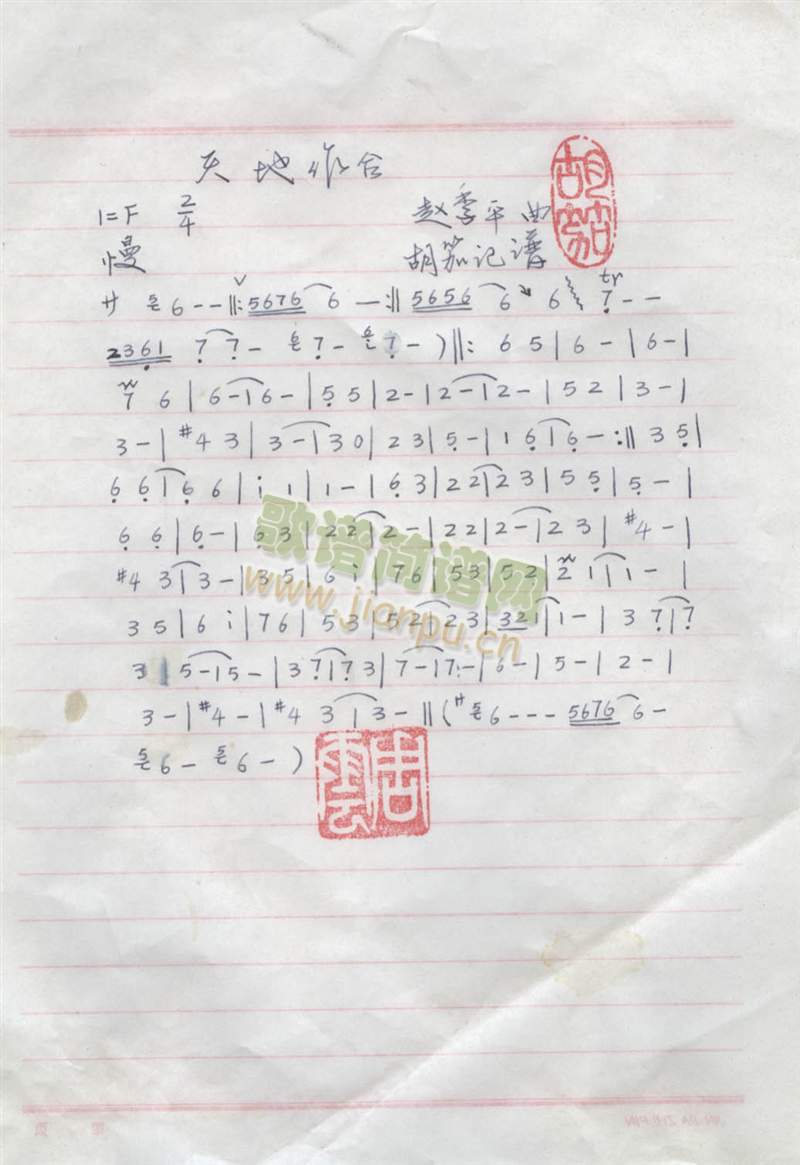 天地作合
1=F 2/4 赵季平 曲
慢 胡笳记谱
胡笳
サ 5 6 - - ‖: 5676 6 — :‖ 5656 6 6 tr 7 - -
2361 7 7 - 6 7 - 6 7 - ) ‖: 6 5 | 6 - | 6 - |
7 6 | 6 - | 6 - | 5 5 | 2 - | 2 - | 2 - | 5 2 | 3 - |
3 - | #4 3 | 3 - | 3 0 | 2 3 | 5 - | 1 6 | 6 - :‖ 3 5 |
6 6 | 6 6 | i 1 | 1 - | 6 3 | 2 2 | 2 3 | 5 5 | 5 - |
6 6 | 6 - | 6 3 | 2 2 | 2 - | 2 2 | 2 - | 2 3 | #4 - |
#4 3 | 3 - | 3 5 | 6 i | 7 6 | 5 3 5 2 | 2 1 | 1 - |
3 5 | 6 i | 7 6 | 5 3 | 5 2 | 2 3 | 321 | 1 - | 3 7 | 7
3 | 5 - | 5 - | 3 7 | 7 3 | 7 - | 7 - | 6 - | 5 - | 2 - |
3 - | #4 - | #4 3 | 3 - ‖ ( サ 5 6 - - - 5676 6 -
5 6 - 5 6 - )
歌谱简谱网
www.jianpu.cn